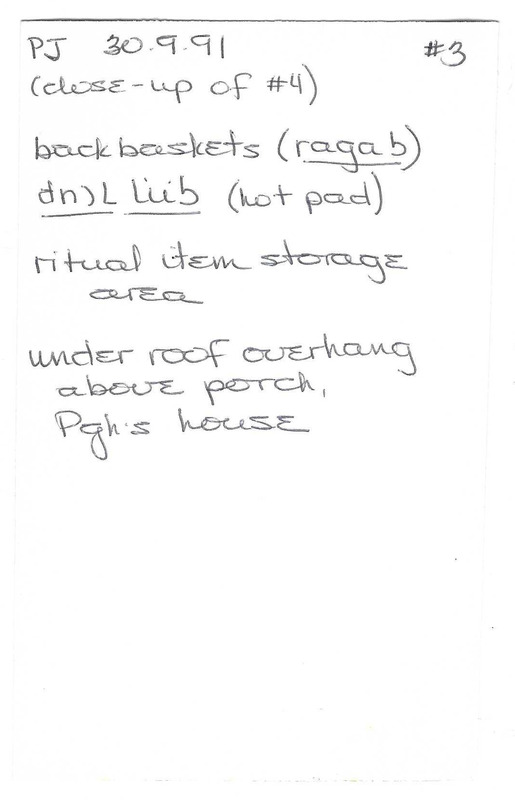 PJ 30.9.91 #3
(close-up of #4)
backbaskets (ragab)
dnɔL liib (hot pad)
ritual item storage
area
under roof overhang
above porch,
Pgh's house